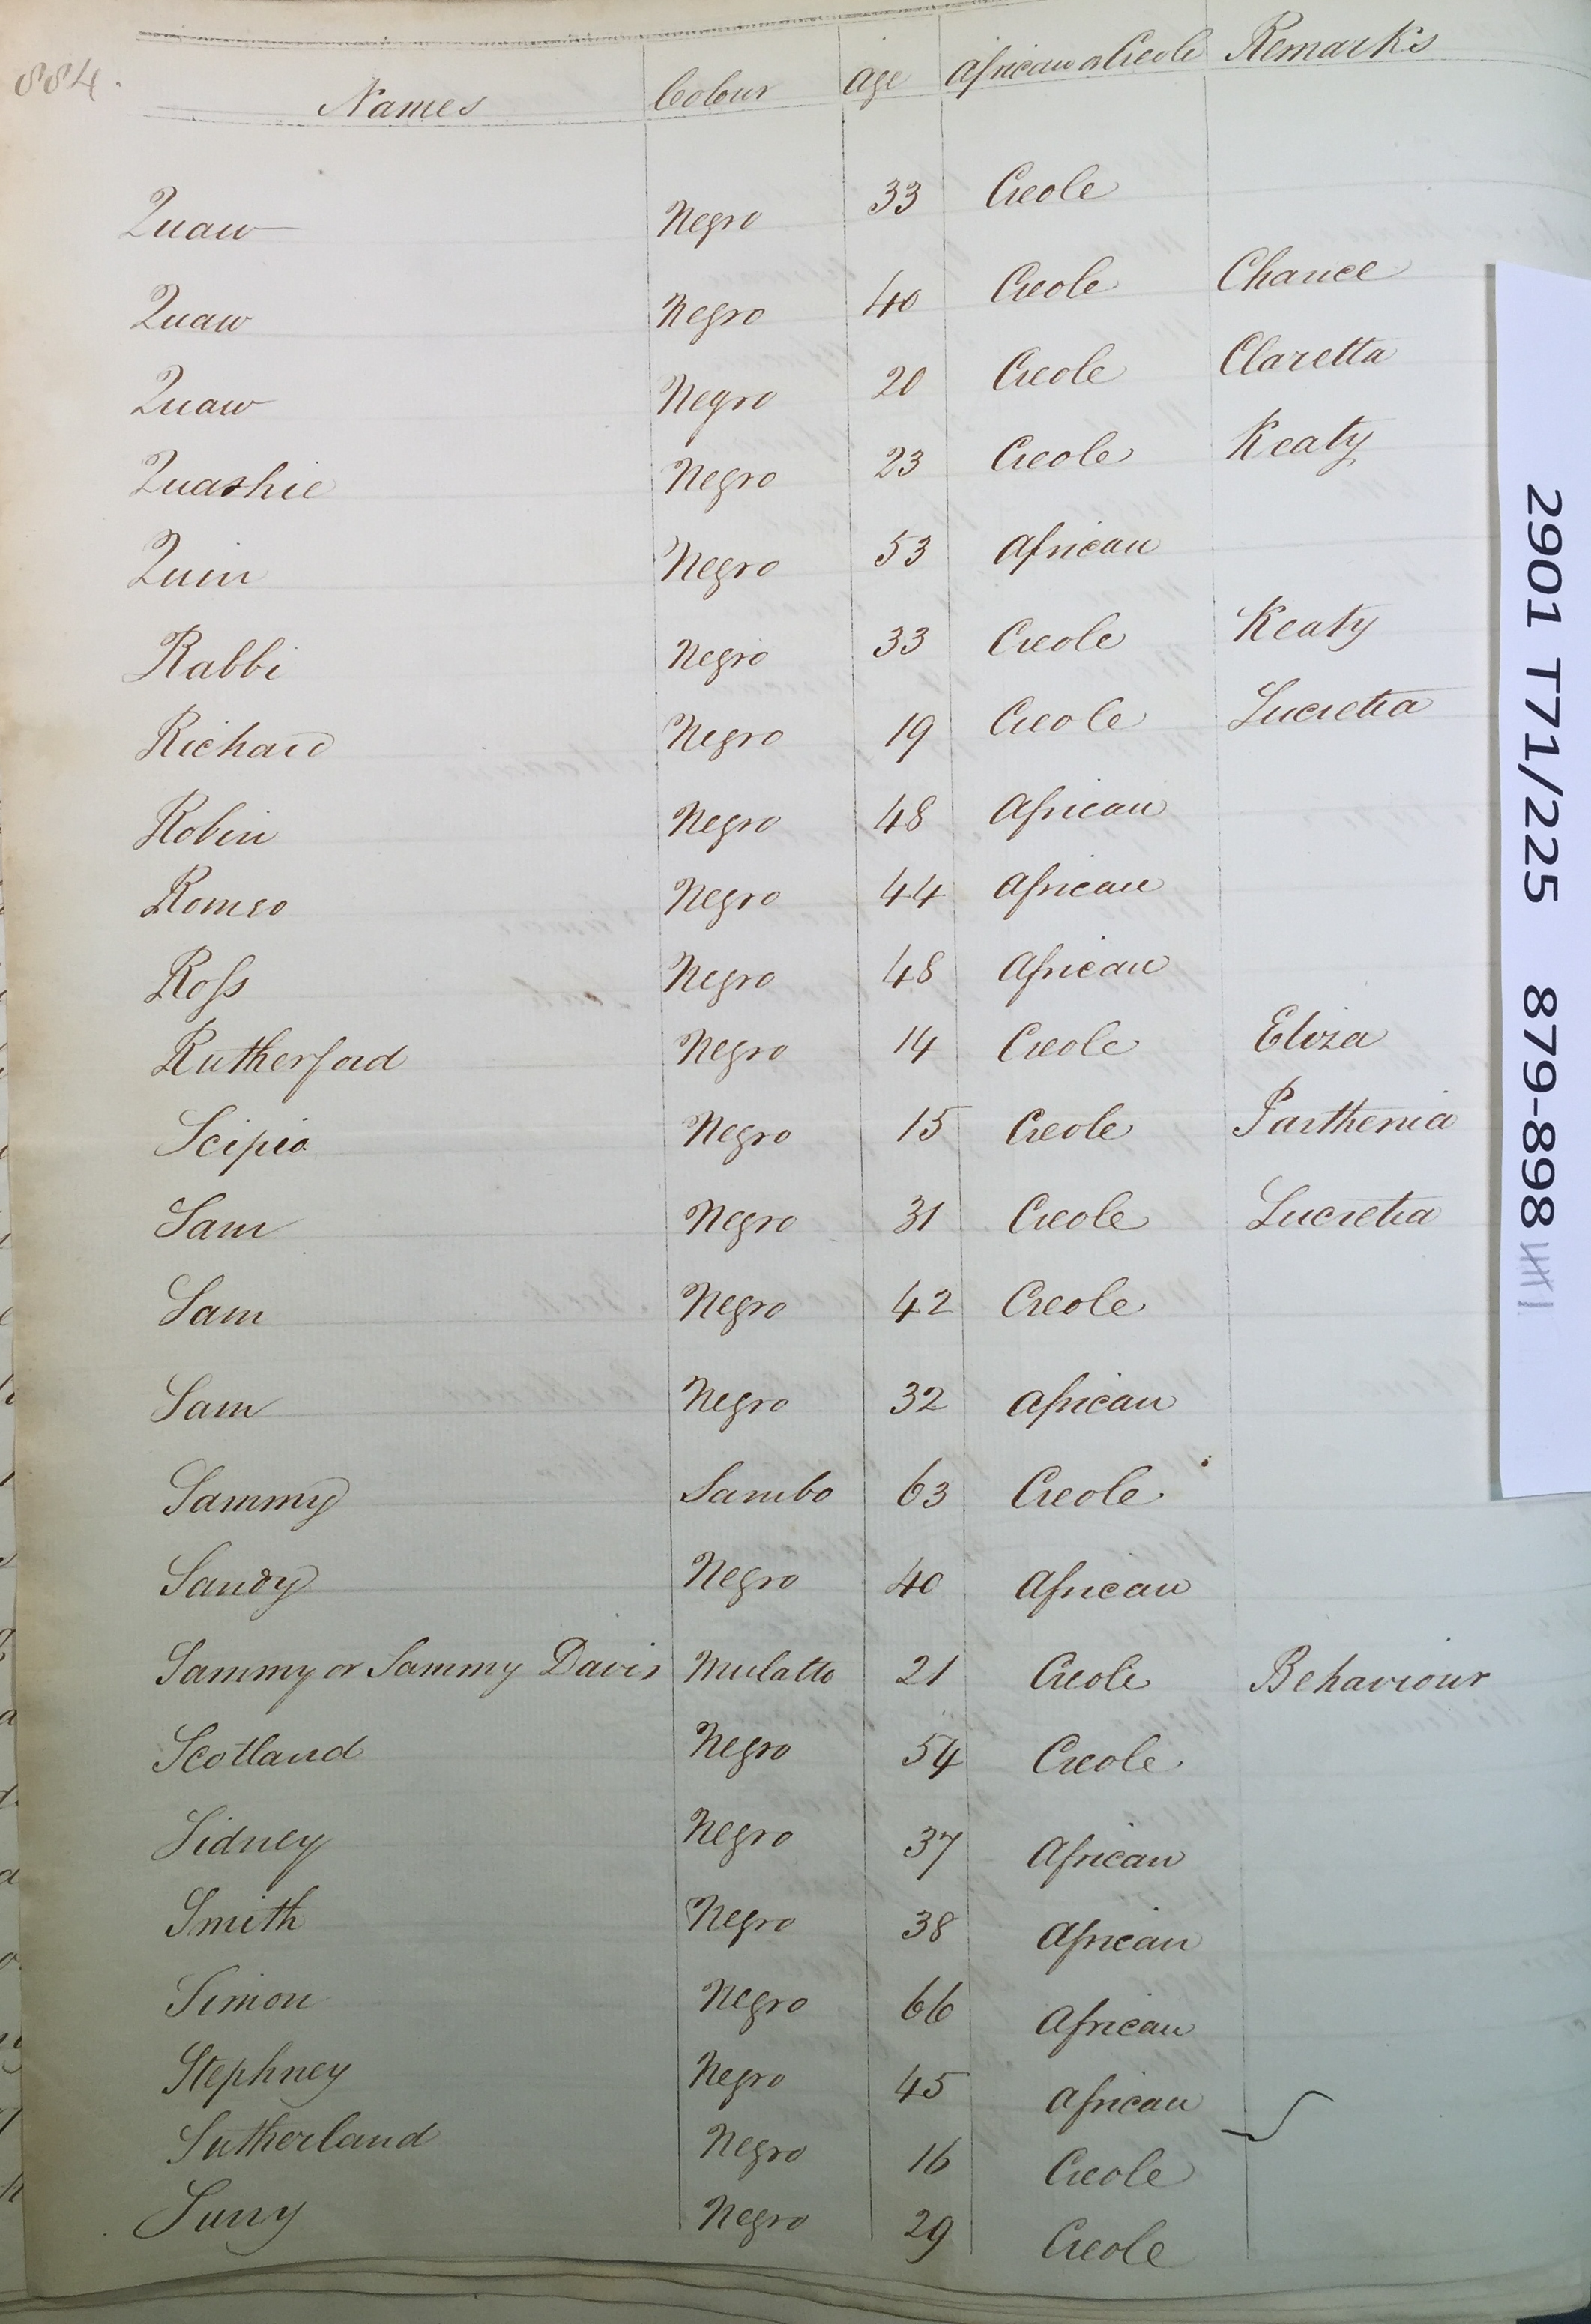 884.
Names Colour Age African or Creole Remarks
Quaw Negro 33 Creole
Quaw Negro 40 Creole Chance
Quaw Negro 20 Creole Claretta
Quashie Negro 23 Creole Keaty
Quin Negro 53 African
Rabbi Negro 33 Creole Keaty
Richard Negro 19 Creole Lucretia
Robin Negro 48 African
Romeo Negro 44 African
Ross Negro 48 African
Rutherford Negro 14 Creole Eliza
Scipio Negro 15 Creole Parthenia
Sam Negro 31 Creole Lucretia
Sam Negro 42 Creole
Sam Negro 32 African
Sammy Sambo 63 Creole
Sandy Negro 40 African
Sammy or Sammy Davis Mulatto 21 Creole Behaviour
Scotland Negro 54 Creole
Sidney Negro 37 African
Smith Negro 38 African
Simon Negro 66 African
Stephney Negro 45 African
Sutherland Negro 16 Creole
Surry Negro 29 Creole
2901 T71/225 879-898